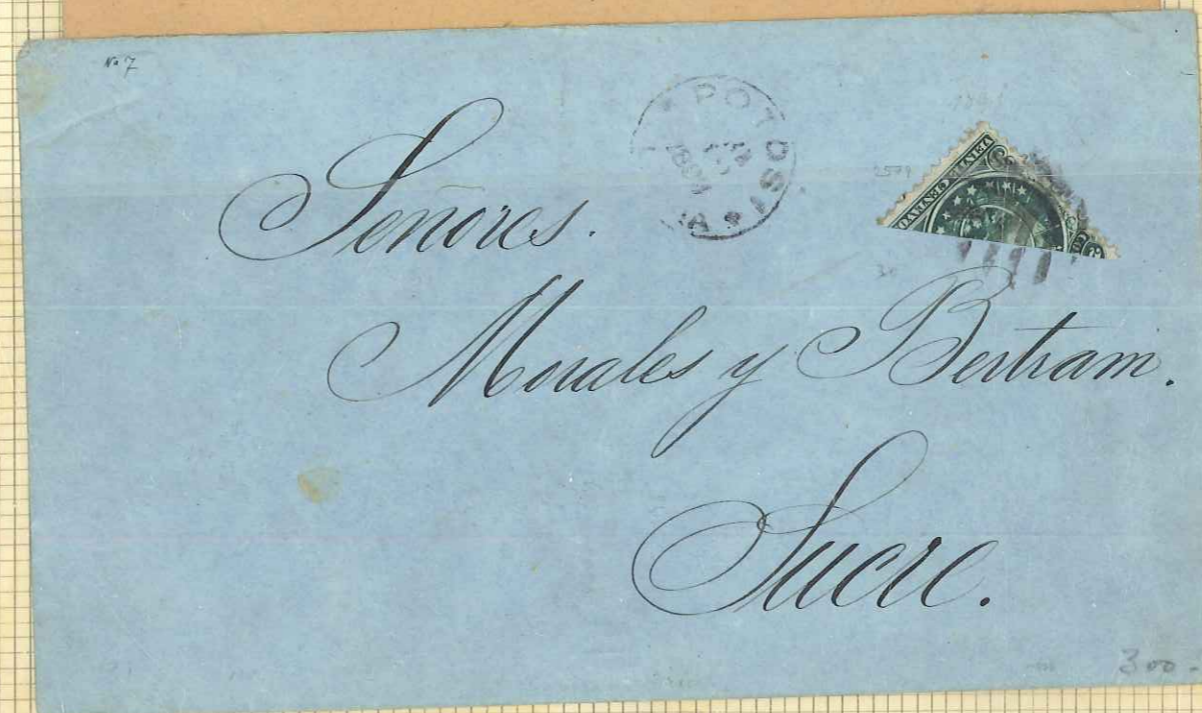 Nº 7
POTOSI
Señores.
Morales y Bertram.
Sucre.
300-